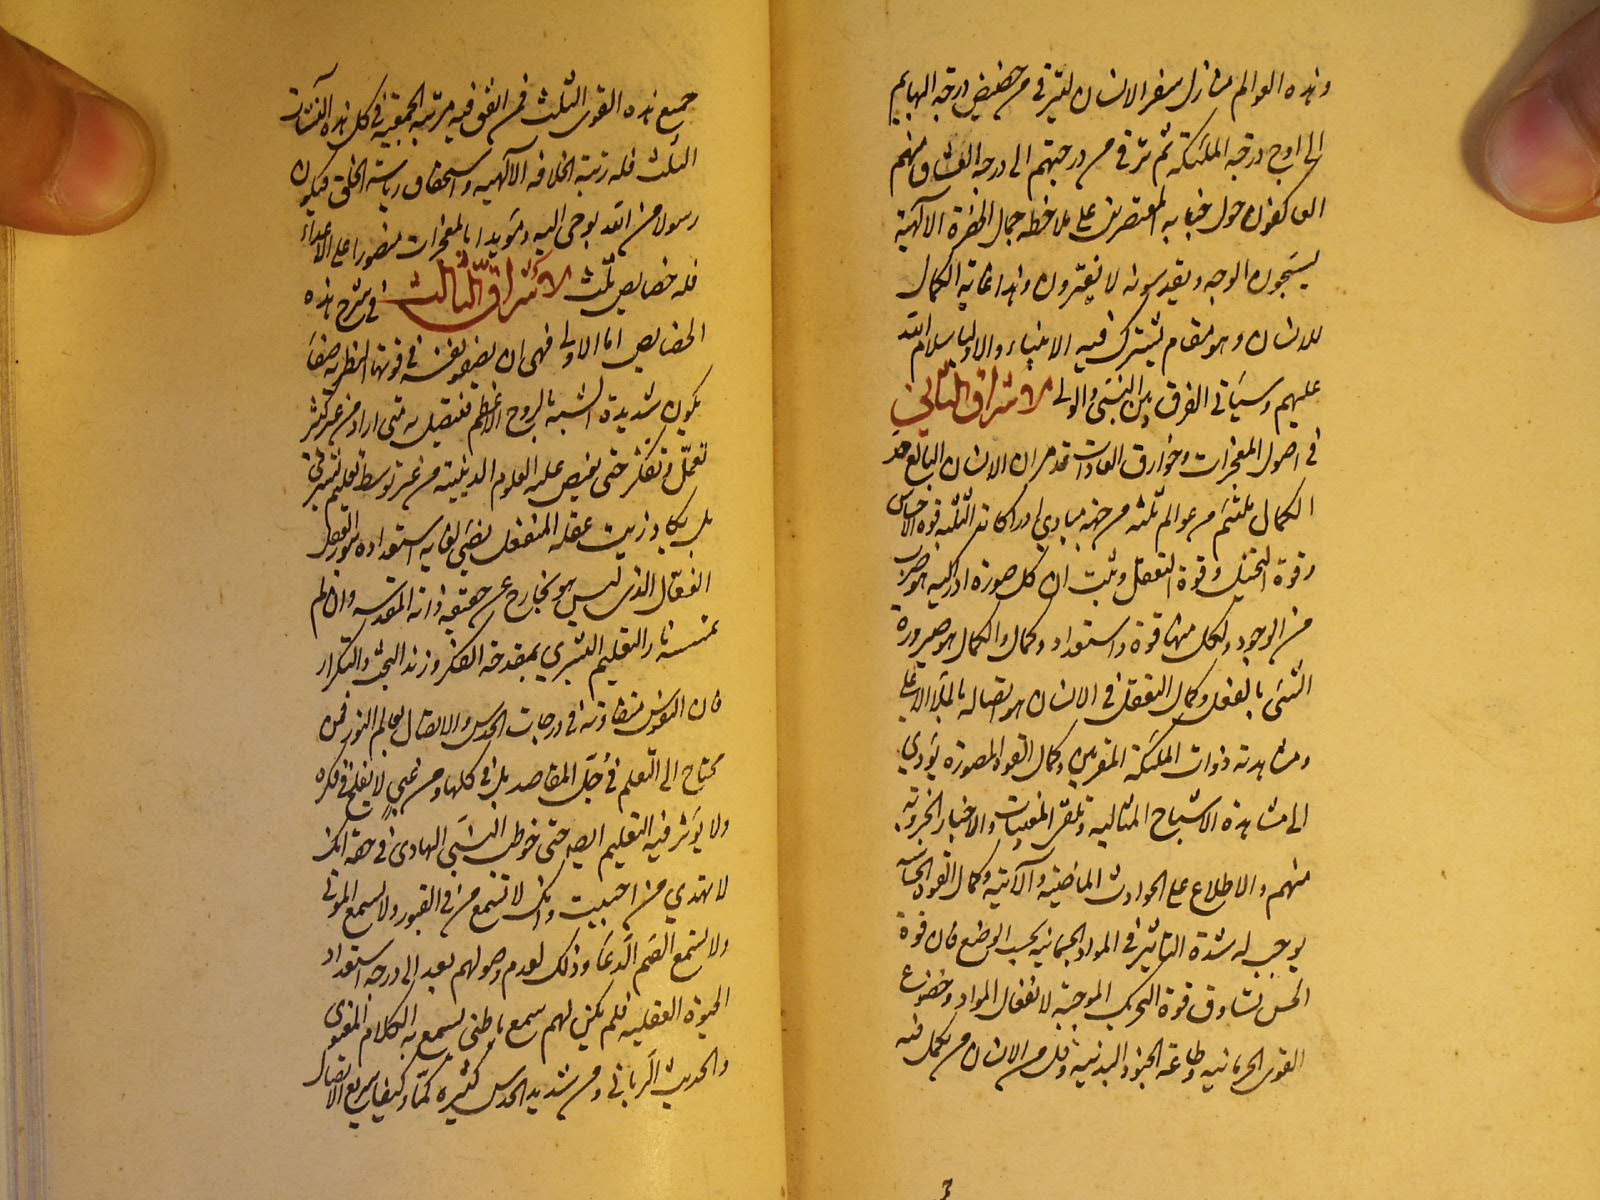 وهذه العوالم منازل سفر الانسان ليترقى من حضيض درجة البهايم
الى اوج درجة الملئكة ثم ترقى من درجتهم الى درجة العشاق منهم
العاكفون حول جنابه المقتصرين على ملاحظة جمال الحضرة الالهية
يسبحون الوجه ويقدسونه لا يفترون وهذا غاية الكمال
للانسان وهو مقام يشترك فيه الانبياء والاولياء سلام الله
عليهم وسياتى الفرق بين النبى والولى الاشراق الثانى
فى اصول المعجزات وخوارق العادات قد مر ان الانسان البالغ حد
الكمال ملتئم من عوالم ثلثة من جهة مبادى ادراكاته الثلثة قوة الاحساس
وقوة التخيل وقوة التعقل وثبت ان كل صورة ادراكية هو ضرب
من الوجود ولكل منها قوة واستعداد وكمال والكمال هو صيرورة
الشئ بالفعل وكمال التعقل فى الانسان هو اتصاله بالملاء الاعلى
ومشاهدته ذوات الملئكة المقربين وكمال القوة المصورة يؤدي
الى مشاهدة الاشباح المثالية وتلقى المغيبات والاخبار الجزوية
منهم والاطلاع على الحوادث الماضية والآتية وكمال القوة الحساسة
يوجب له شدة التاثير فى المواد الجسمانية بحسب الوضع فان قوة
الحس تساوق قوة التحريك الموجبة لانفعال المواد وخضوع
القوى الجرمانية وطاعة الجنود البدنية وقل من الانسان من يكمل فيه
جميع هذه القوى الثلث فمن اتفق فيه مرتبة الجمعية فى كل هذه النشآت
الثلث فله رتبة الخلافة الالهية واستحقاق رياسة الخلق فيكون
رسولا من الله يوحى اليه ومؤيدا بالمعجزات منصورا على الاعداء
فله خصايص ثلث الاشراق الثالث فى شرح هذه
الخصايص اما الاولى فهى ان يصفو نفسه فى قوتها النظرية صفاء
يكون شديدة الشبه بالروح الاعظم فيتصل به متى اراد من غير كثير
تعمّل وتفكر حتى يفيض عليه العلوم اللدينية من غير توسط تعليم بشرى
بل يكاد زيت عقله المنفعل يضئ لغاية استعداده بنور العقل
الفعال الذى ليس هو بخارج عن حقيقة ذاته المقدسة وان لم
تمسسه نار التعليم البشري بمقدحة الفكر وزند البحث والتكرار
فان النفوس متفاوتة فى درجات الحدس والاتصال بعالم النور فمن
محتاج الى التعلم فى جل المقاصد بل فى كلها ومن غبي لا يفلح فى فكره
ولا يؤثر فيه التعليم ايضا حتى خوطب النبى الهادى فى حقه انك
لا تهدي من احببت وانك لا تسمع من فى القبور ولا تسمع الموتى
ولا تسمع الصم الدعاء وذلك لعدم وصولهم بعد الى درجة استعداد
الحيوة العقلية فلم يكن لهم سمع باطنى يسمع به الكلام المعنوى
والحديث الربانى ومن شديد الحدس كثيره كما وكيفا سريع الاتصال